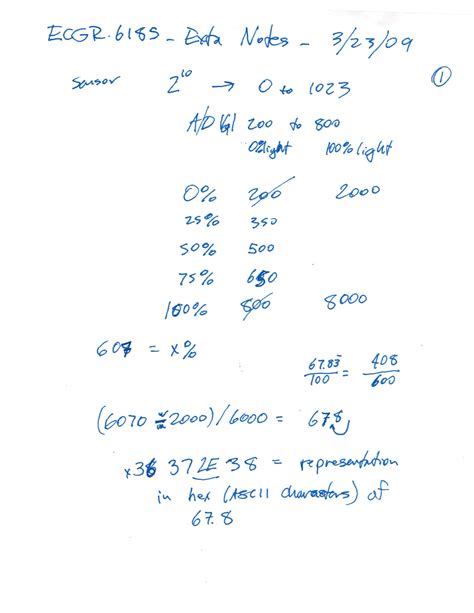 ECGR.6185 - Exta Notes - 3/23/09
①
Sensor 2^10 → 0 to 1023
A/D Val 200 to 800
0% light 100% light
0% 200 2000
25% 350
50% 500
75% 650
100% 800 8000
607 = x%
67.83/100 = 408/600
(6070 - 2000)/6000 = 678
x36 37 2E 38 = representation
in hex (ASCII charactors) of
67.8